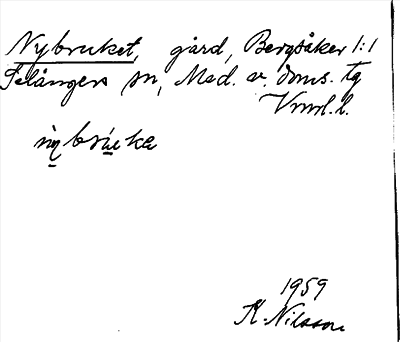 Nybruket, gård, Bergsåker 1:1
Selångers sn, Med. v. doms. tg
Vnrl. l.
nybruka
1959
K. Nilsson